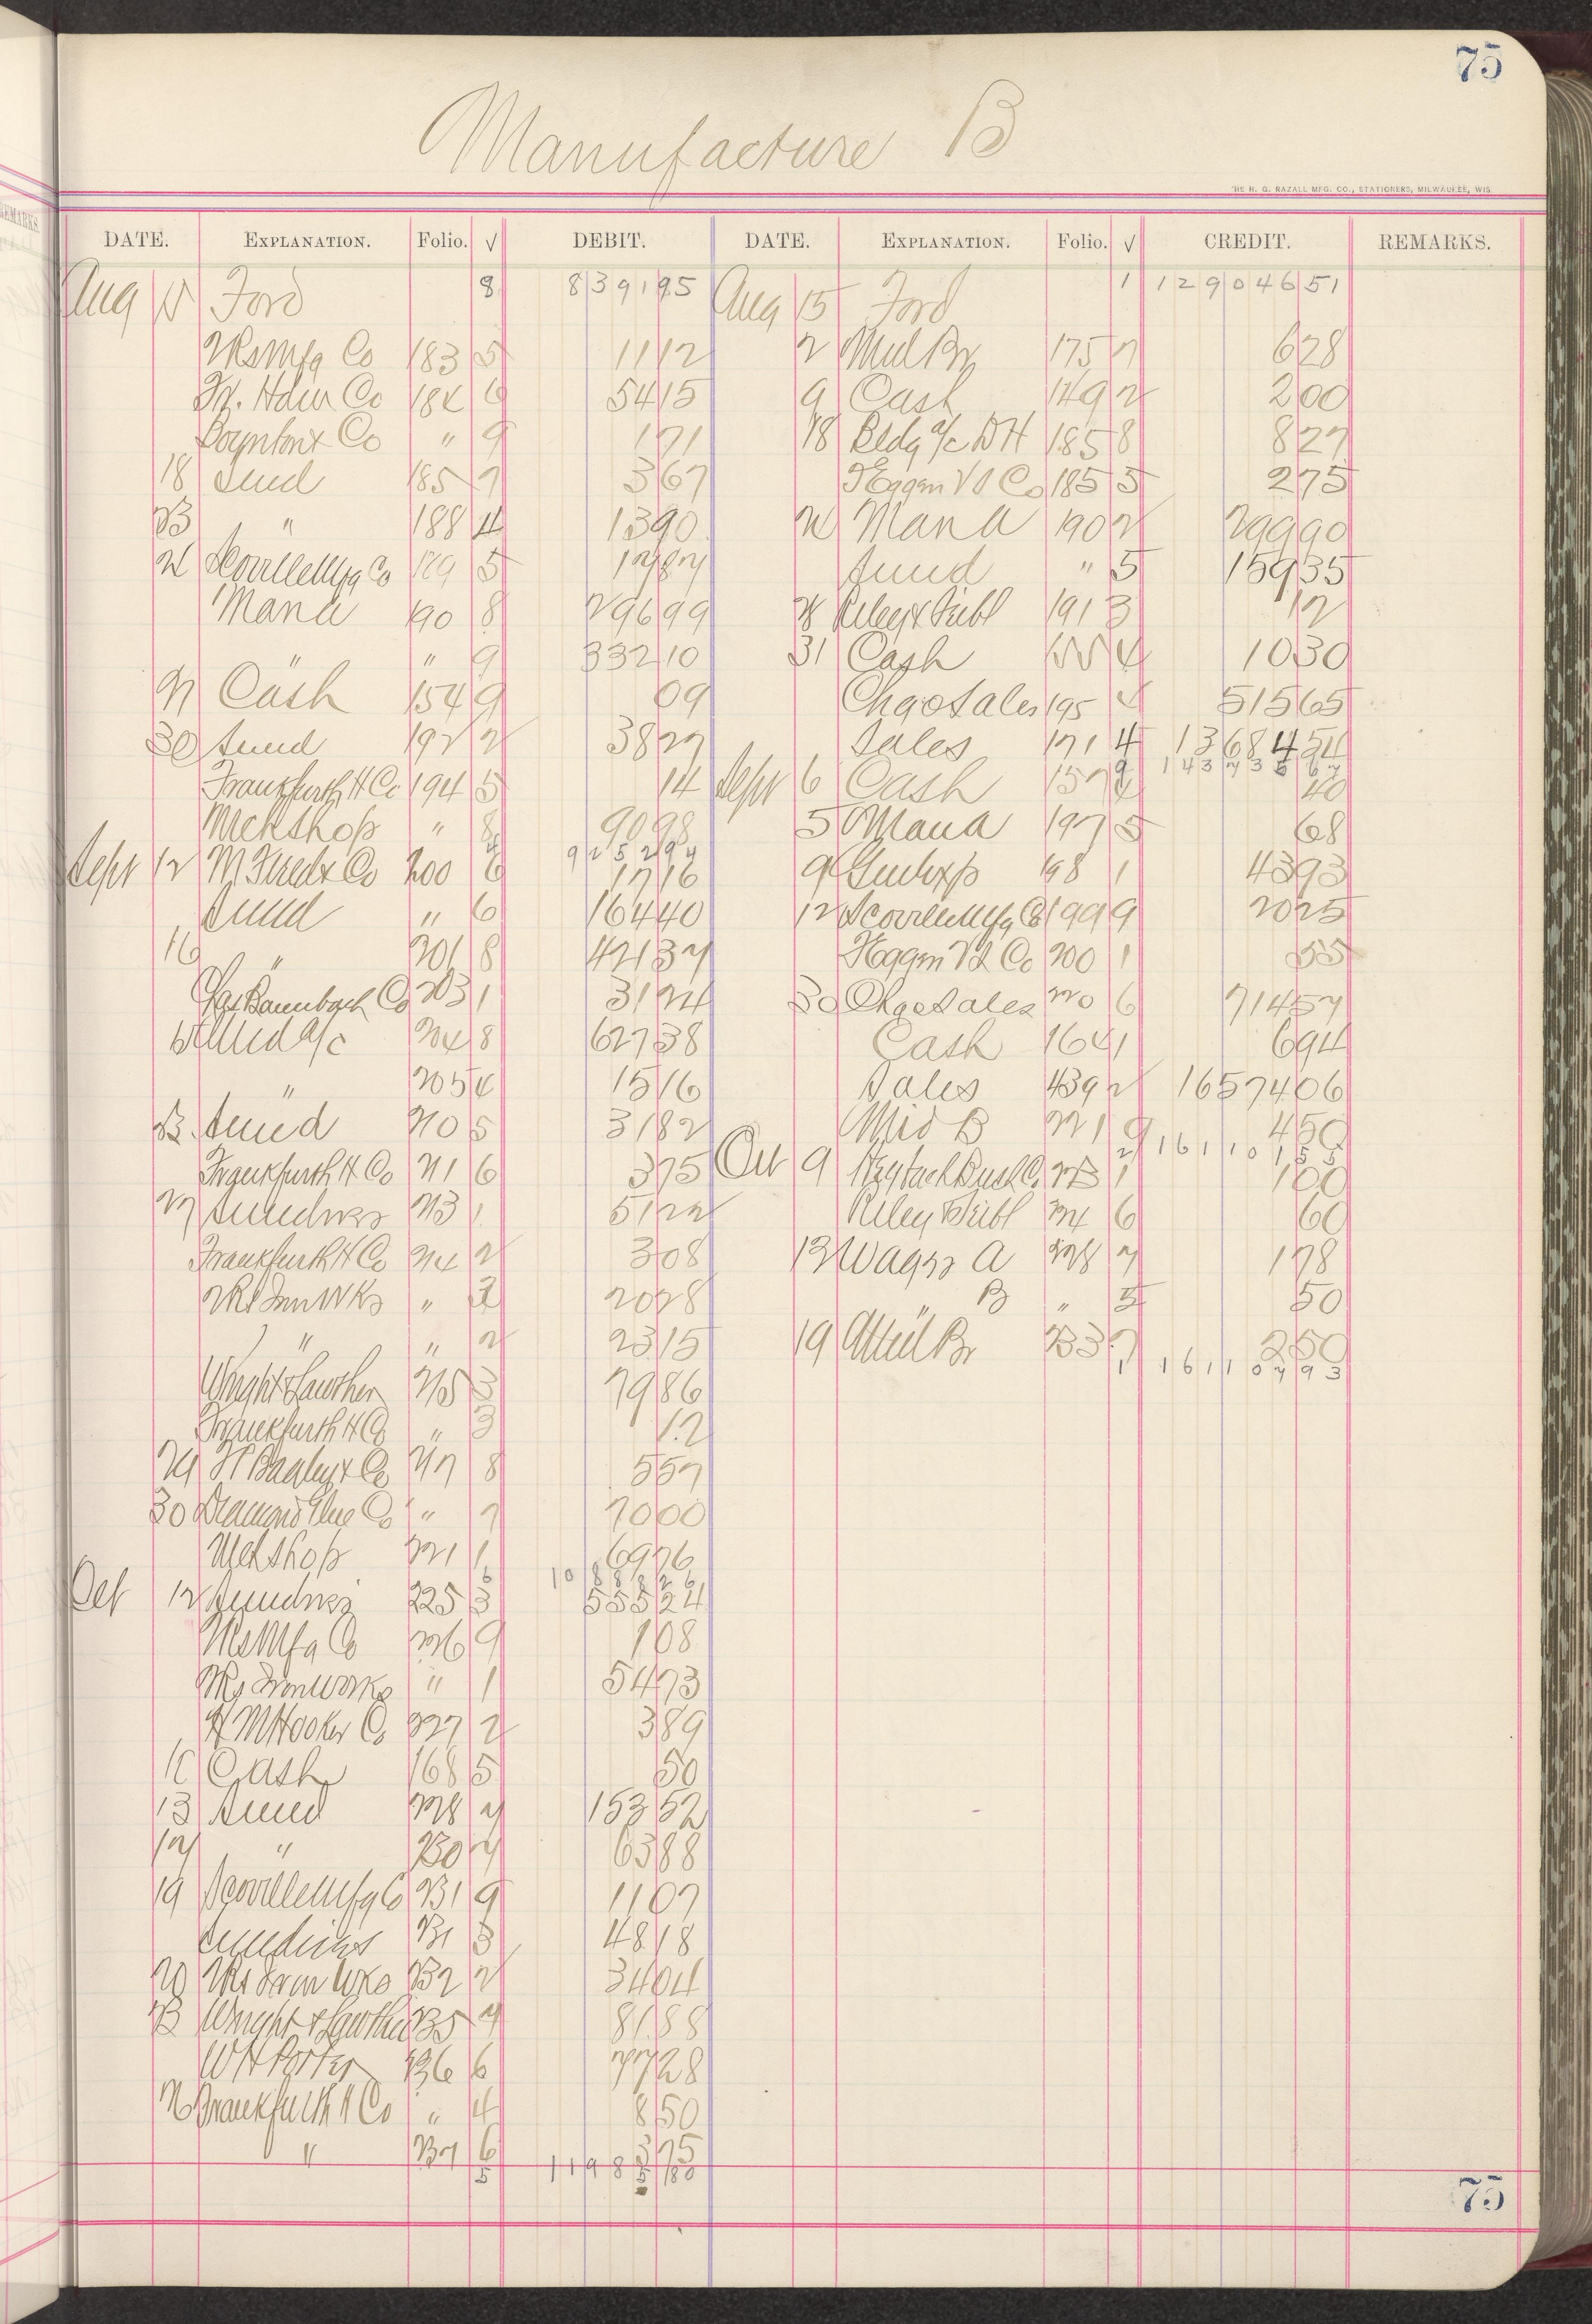 75
Manufacture B
THE H. G. RAZALL MFG. CO., STATIONERS, MILWAUKEE, WIS.
DATE. EXPLANATION. Folio. √ DEBIT. DATE. EXPLANATION. Folio. √ CREDIT. REMARKS.
Aug 15 Ford 8 8391 95 Aug 15 Ford 1 129046 51
Mfg Co 183 5 11 12 2 Mul Br 175 7 6 28
Co 184 6 54 15 9 Cash 149 2 2 00
Boynton & Co " 9 1 71 18 Bldg a/c D H 185 8 8 27
18 Sund 185 7 3 67 Co 185 5 2 75
23 " 188 4 13 90 24 Man A 190 2 299 90
24 Scoville Mfg Co 189 5 12 87 Sund " 5 159 35
Man A 190 8 296 99 28 Riley & 191 3 12
" " 9 332 10 31 Cash 4 10 30
27 Cash 154 9 09 Chgo Sales 195 4 515 65
30 Sund 192 2 38 27 Sales 171 4 13684 54
Frankfurth H Co 194 5 14 143 735 67
Sept 6 Cash 157 40
Mchshop " 8 90 98 5 Man A 197 5 68
9252 94
Sept 12 & Co 200 6 17 16 9 Genl Exp 198 1 43 93
Sund " 6 164 40 12 Scoville Mfg Co 199 9 20 25
16 " 201 8 421 37 Co 200 1 55
Baumbach Co 203 1 31 24 30 Chgo Sales 220 6 714 57
Sund a/c 204 8 627 38 Cash 164 1 6 94
" 205 4 15 16 Sales 439 2 16574 06
23 Sund 210 5 31 82 B 221 9 4 50
161 101 55
Frankfurth H Co 211 6 3 75 Oct 9 1 1 00
27 Sundries 213 1 51 22 Riley & 224 6 60
Frankfurth H Co 214 2 3 08 13 Wages A 228 7 1 78
Irn Wks " 2 20 28 B " 5 50
" " 2 23 15 19 Br 233 7 2 50
161 107 93
Wright & Lawther 215 3 79 86
Frankfurth H Co " 3 12
29 Bagley & Co 217 8 5 57
30 Diamond Glue Co " 7 70 00
Mchshop 221 1 69 76
10 888 26
Oct 12 Sundries 225 3 555 24
Mfg Co 226 9 1 08
Iron Works " 1 54 73
H M Hooker Co 227 2 3 89
11 Cash 168 5 50
13 Sund 228 7 153 52
17 " 230 7 63 88
19 Scoville Mfg Co 231 9 11 07
Sundries 231 3 48 18
20 Iron Wks 232 2 34 04
23 Wright & Lawther 235 7 81 88
W H Porter 236 6 77 28
26 Frankfurth H Co " 4 8 50
" 237 6 3 75
5 11985 80
75